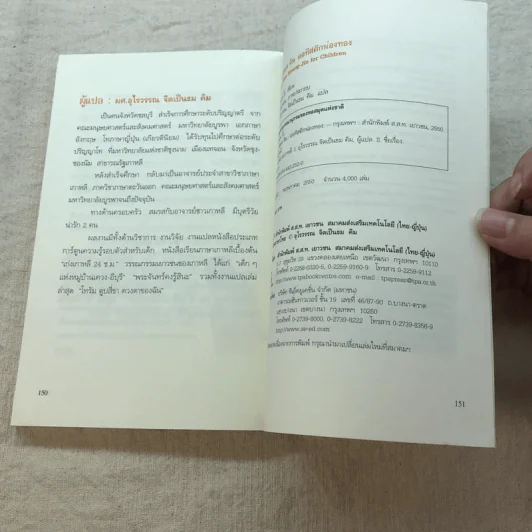 ผู้แปล : ผศ.อุไรวรรณ จิตเป็นธม คิม
เป็นคนจังหวัดชลบุรี สำเร็จการศึกษาระดับปริญญาตรี จาก
คณะมนุษยศาสตร์และสังคมศาสตร์ มหาวิทยาลัยบูรพา เอกภาษา
อังกฤษ โทภาษาญี่ปุ่น (เกียรตินิยม) ได้รับทุนไปศึกษาต่อระดับ
ปริญญาโท ที่มหาวิทยาลัยแห่งชาติชุงนาม เมืองแทจอน จังหวัดชุง-
ชองนัม สาธารณรัฐเกาหลี
หลังสำเร็จศึกษา กลับมาเป็นอาจารย์ประจำสาขาวิชาภาษา
เกาหลี ภาควิชาภาษาตะวันออก คณะมนุษยศาสตร์และสังคมศาสตร์
มหาวิทยาลัยบูรพาจนถึงปัจจุบัน
ทางด้านครอบครัว สมรสกับอาจารย์ชาวเกาหลี มีบุตรวัย
น่ารัก 2 คน
ผลงานมีทั้งด้านวิชาการ งานวิจัย งานแปลหนังสือประเภท
การ์ตูนความรู้รอบตัวสำหรับเด็ก หนังสือเรียนภาษาเกาหลีเบื้องต้น
"เก่งเกาหลี 24 ช.ม." วรรณกรรมเยาวชนของเกาหลี ได้แก่ "เด็ก ๆ
แห่งหมู่บ้านแดวง-อีบุรี" "พระจันทร์คงรู้สินะ" รวมทั้งงานแปลเล่ม
ล่าสุด
150
คอทิสติกน่องทอง
for Children
คิม แปล
กรุงเทพฯ : สำนักพิมพ์ ส.ส.ท. เยาวชน, 2550.
I. อุไรวรรณ จิตเป็นธม คิม, ผู้แปล. II. ชื่อเรื่อง.
พฤษภาคม 2550 จำนวน 4,000 เล่ม
สำนักพิมพ์ ส.ส.ท. เยาวชน สมาคมส่งเสริมเทคโนโลยี (ไทย-ญี่ปุ่น)
© อุไรวรรณ จิตเป็นธม คิม
ส.ส.ท. เยาวชน สมาคมส่งเสริมเทคโนโลยี (ไทย-ญี่ปุ่น)
สุขุมวิท 29 แขวงคลองเตยเหนือ เขตวัฒนา กรุงเทพฯ 10110
0-2258-0320-5, 0-2259-9160-9 โทรสาร 0-2258-9112
e-mail : tpapress@tpa.or.th
บริษัท ซีเอ็ดยูเคชั่น จำกัด (มหาชน)
อาคารเนชั่นทาวเวอร์ ชั้น 19 เลขที่ 46/87-90 ถ.บางนา-ตราด
เขตบางนา กรุงเทพฯ 10260
โทรศัพท์ 0-2739-8000, 0-2739-8222 โทรสาร 0-2739-8356-9
http://www.se-ed.com
เนื่องจากการพิมพ์ กรุณานำมาเปลี่ยนเล่มใหม่ที่สมาคมฯ
151